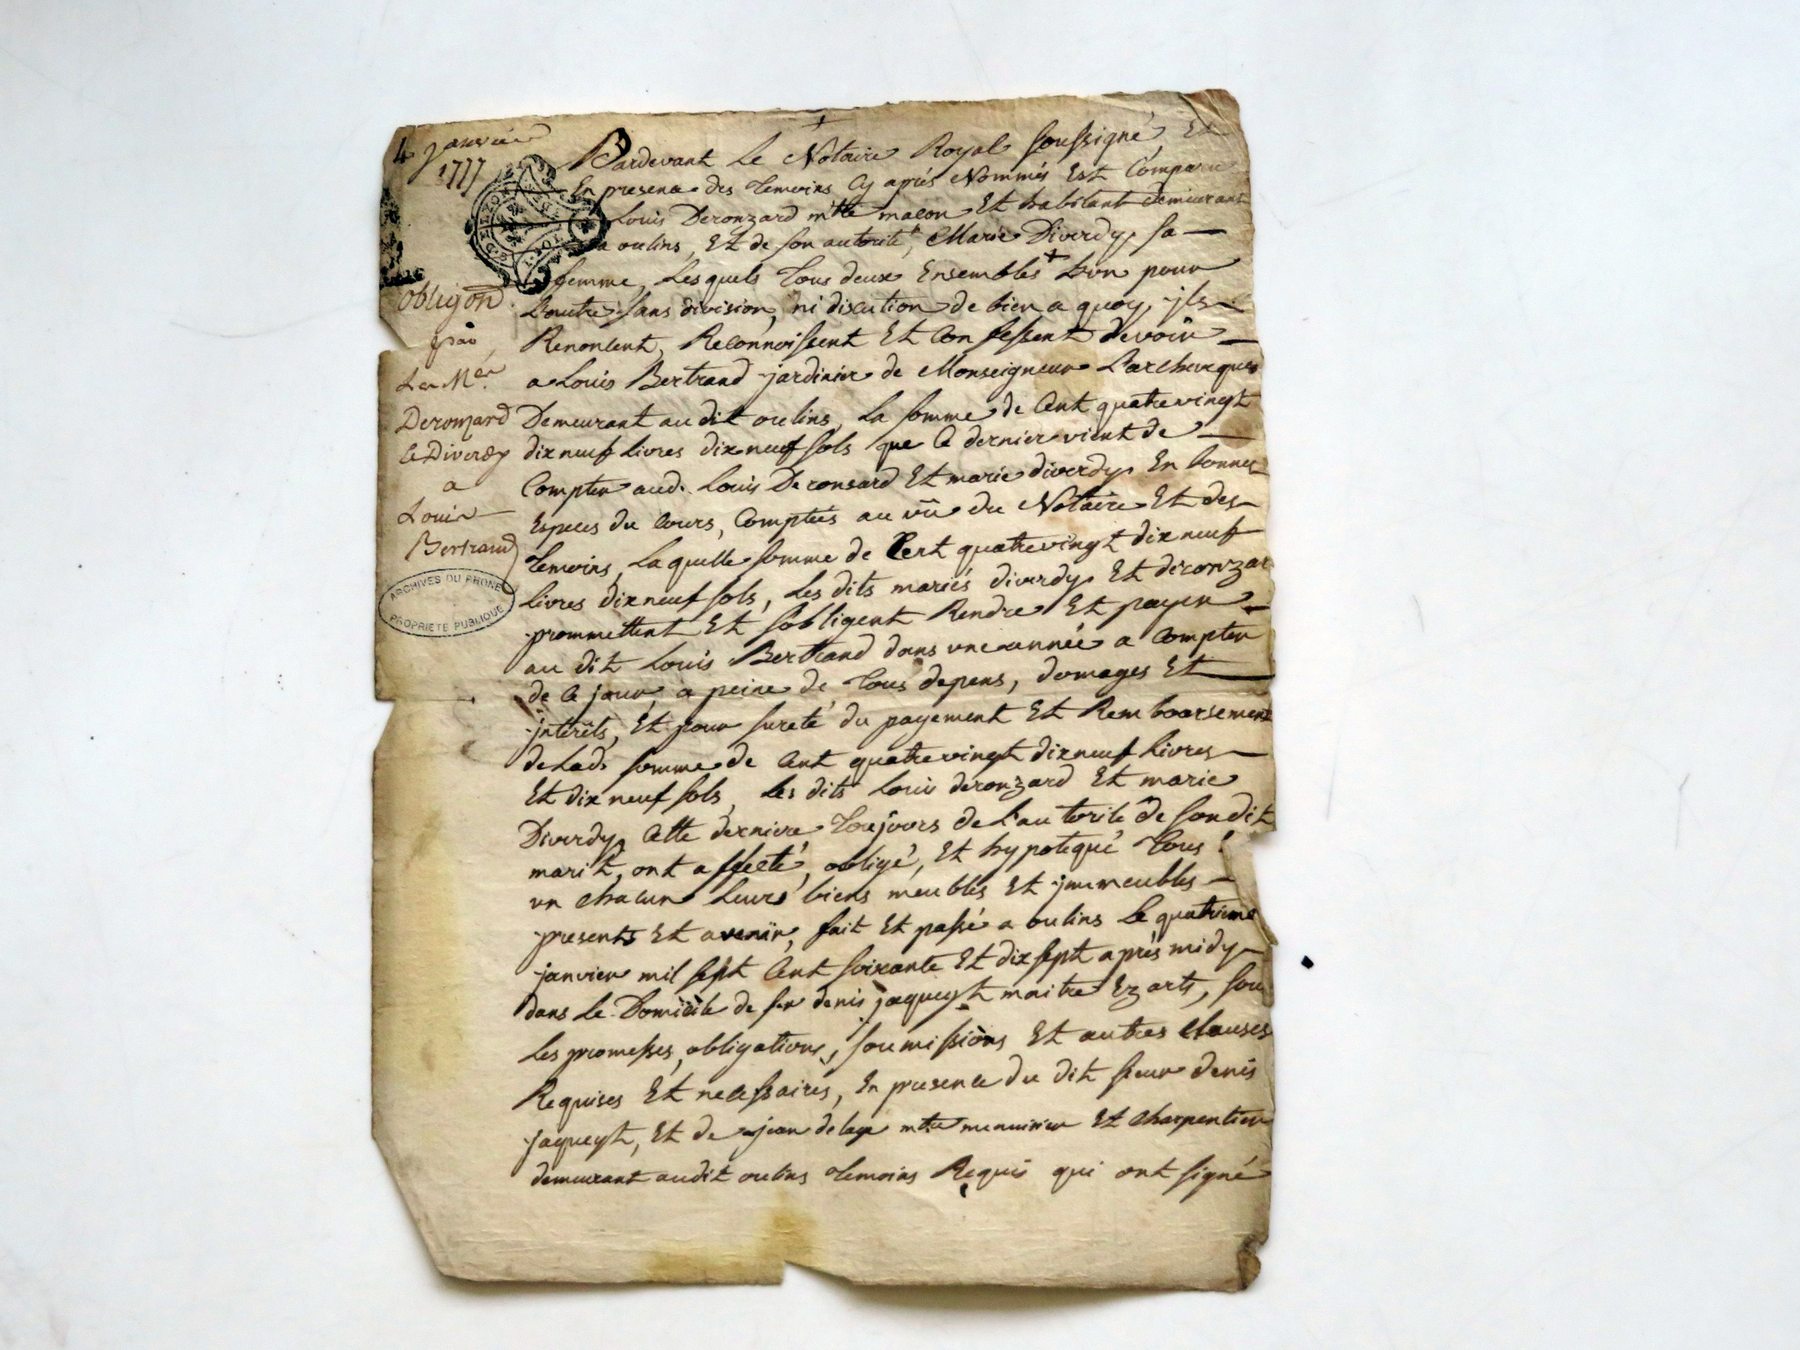 4 janvier
1777
obligõn
par
Les M.
Deronzard
& Diverdy
a
Louis
Bertrand
ARCHIVES DU RHONE
PROPRIETE PUBLIQUE
Pardevant Le Notaire Royal soussigné, Et
En presence des temoins Cy aprés Nommés Est Comparu
Louis Deronzard mtre macon Et habitant demeurant
a oulins, Et de son autorité, Marie Diverdy, sa
femme, Lesquels tous deux Ensembles L'un pour
L'autre sans division, ni discution de bien a quoy, jls
Renoncent, Reconnoissent Et Confessent devoir
a Louis Bertrand jardinier de Monseigneur L'archeveque
Demeurant au dit oulins, La somme de Cent quatrevingt
dix neuf Livres dix neuf sols que Ce dernier vient de
Compter aud. Louis Deronsard Et marie diverdy En bonnes
Especes du Cours, Comptées au vû du Notaire Et des
temoins, Laquelle somme de Cent quatrevingt dix neuf
Livres dix neuf sols, Les dits mariés diverdy Et deronzar
prommettent Et s'obligent Rendre Et payer
au dit Louis Bertrand dans une année a Compter
de Ce jour, a peine de tous depens, domages Et
jnterêts, Et pour sureté du payement Et Remboursement
de Lad. somme de Cent quatrevingt dix neuf Livres
Et dix neuf sols, Les dits Louis deronzard Et marie
Diverdy, Cette derniere toujours de L'autorité de son dit
marit, ont affecté, obligé, Et hypotequé tous
un chacun Leurs biens meubles Et jmmeubles
presents Et avenir, fait Et passé a oulins Le quatrieme
janvier mil sept Cent soixante Et dix sept aprés midy
dans Le Domicile de sr denis jaqueyt maitre Ez arts, sou
Les promesses, obligations, soumissions Et autres Clauses
Requises Et necessaires, En presence du dit sieur denis
jaqueyt, Et de jean delaye mtre menuisier Et charpentier
demeurant audit oulins temoins Requis qui ont signé